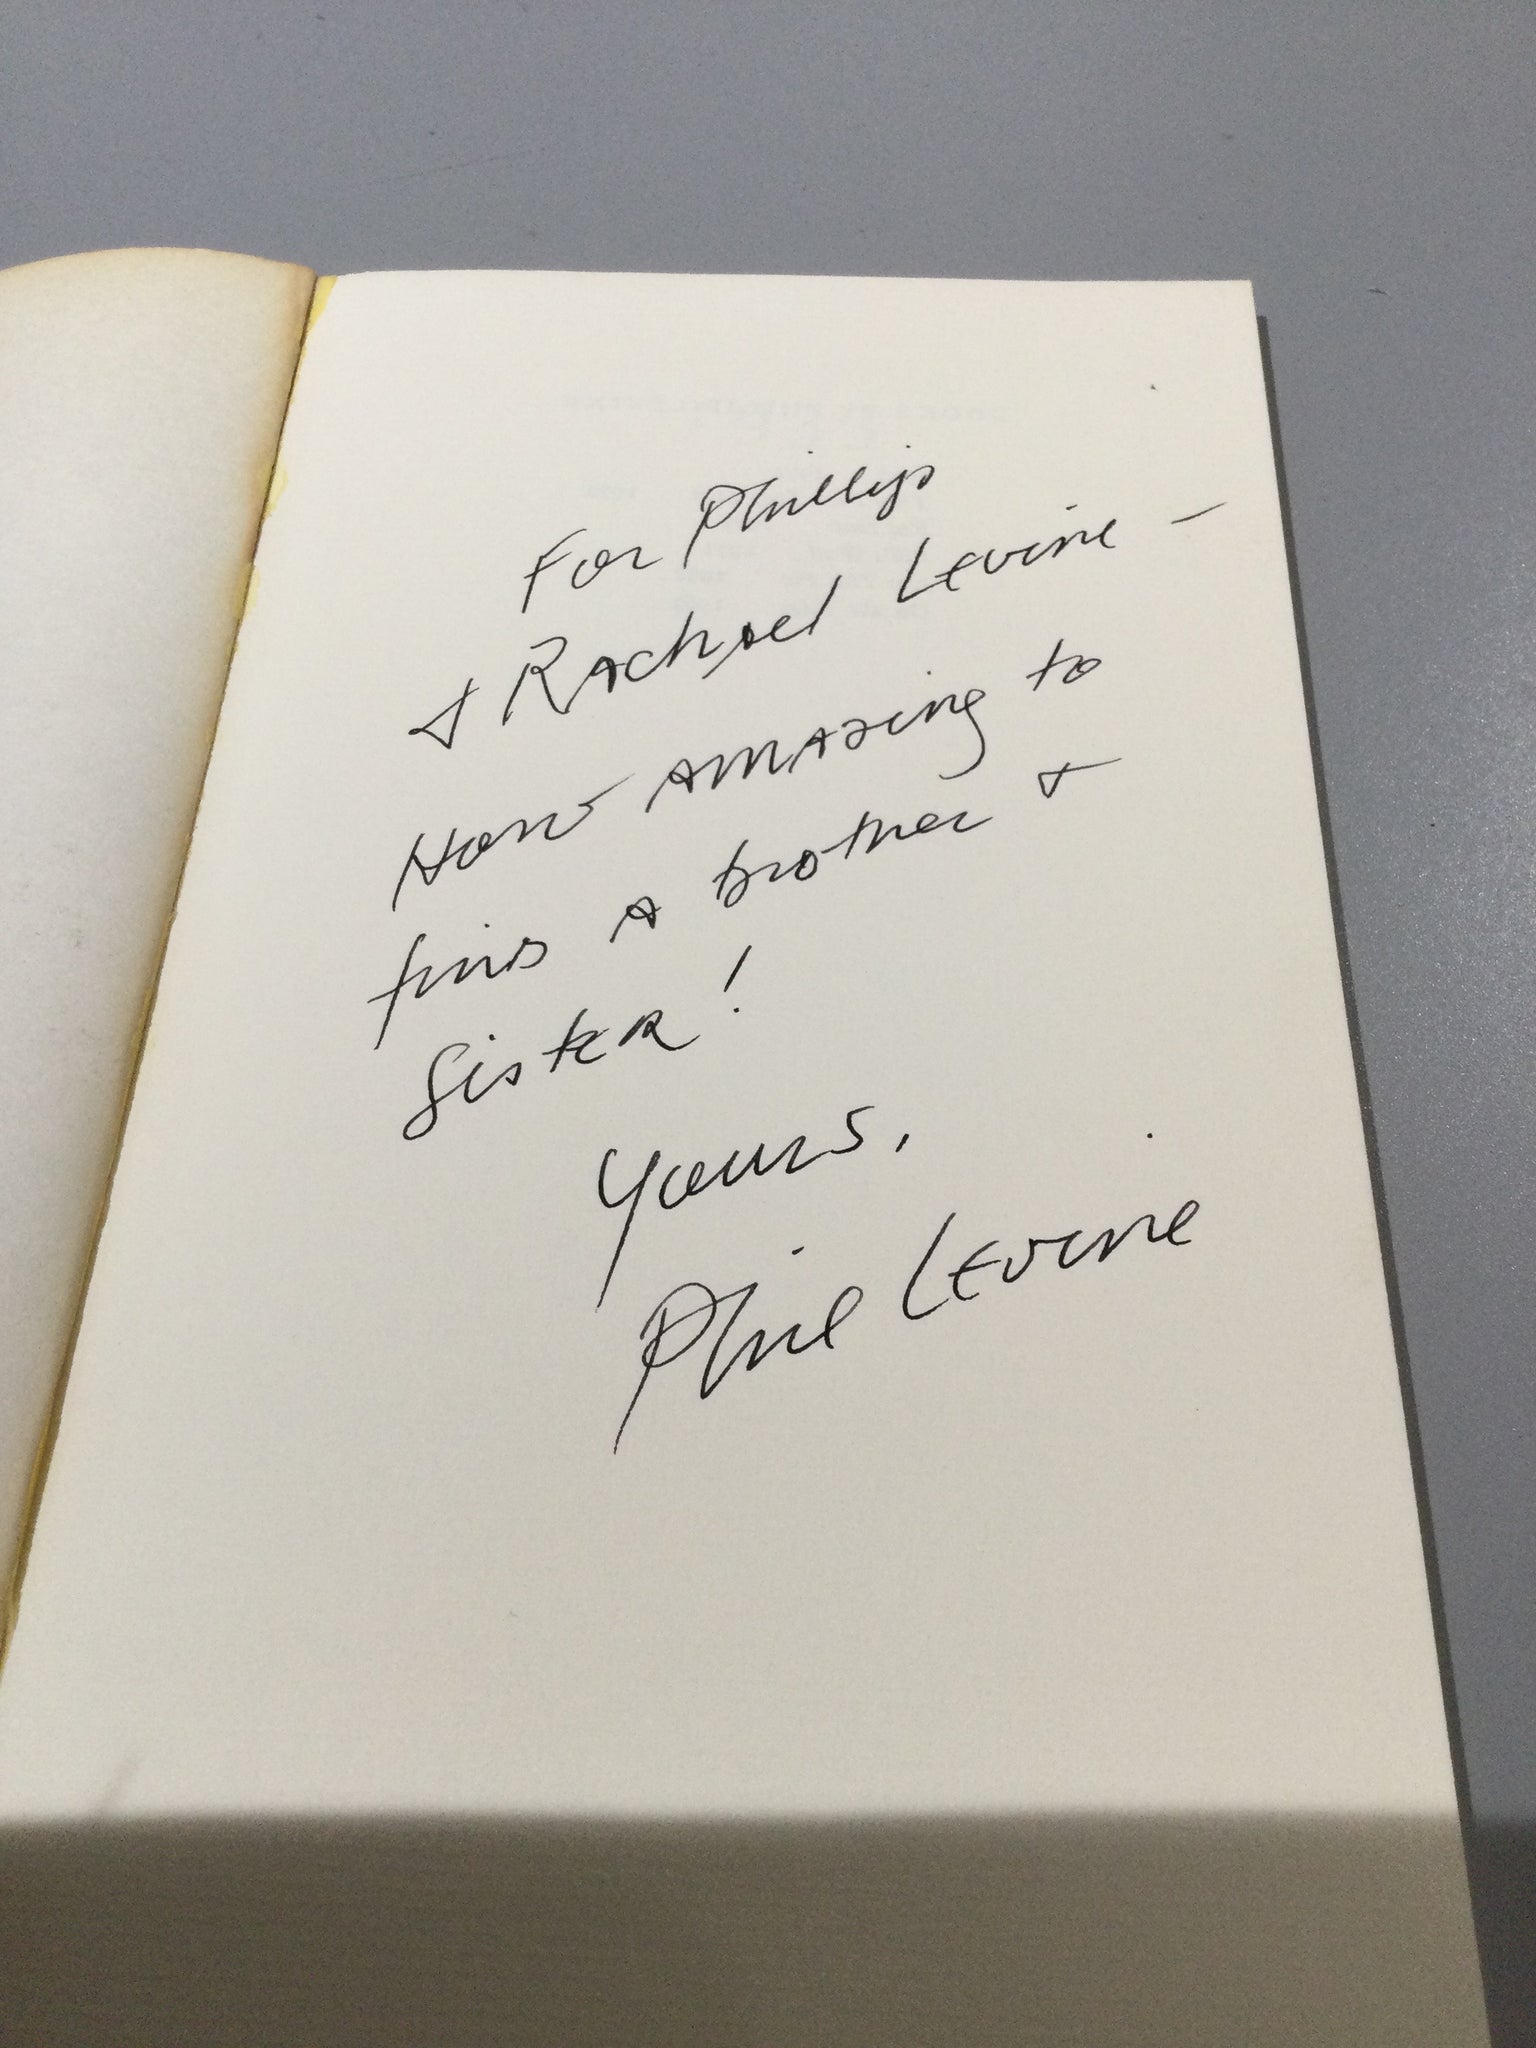 For Phillip
& Rachael Levine –
How amazing to
find a brother &
Sister!
Yours,
Phil Levine